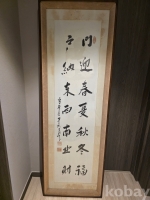 門迎春夏秋冬福
戶納東西南北財
kobay